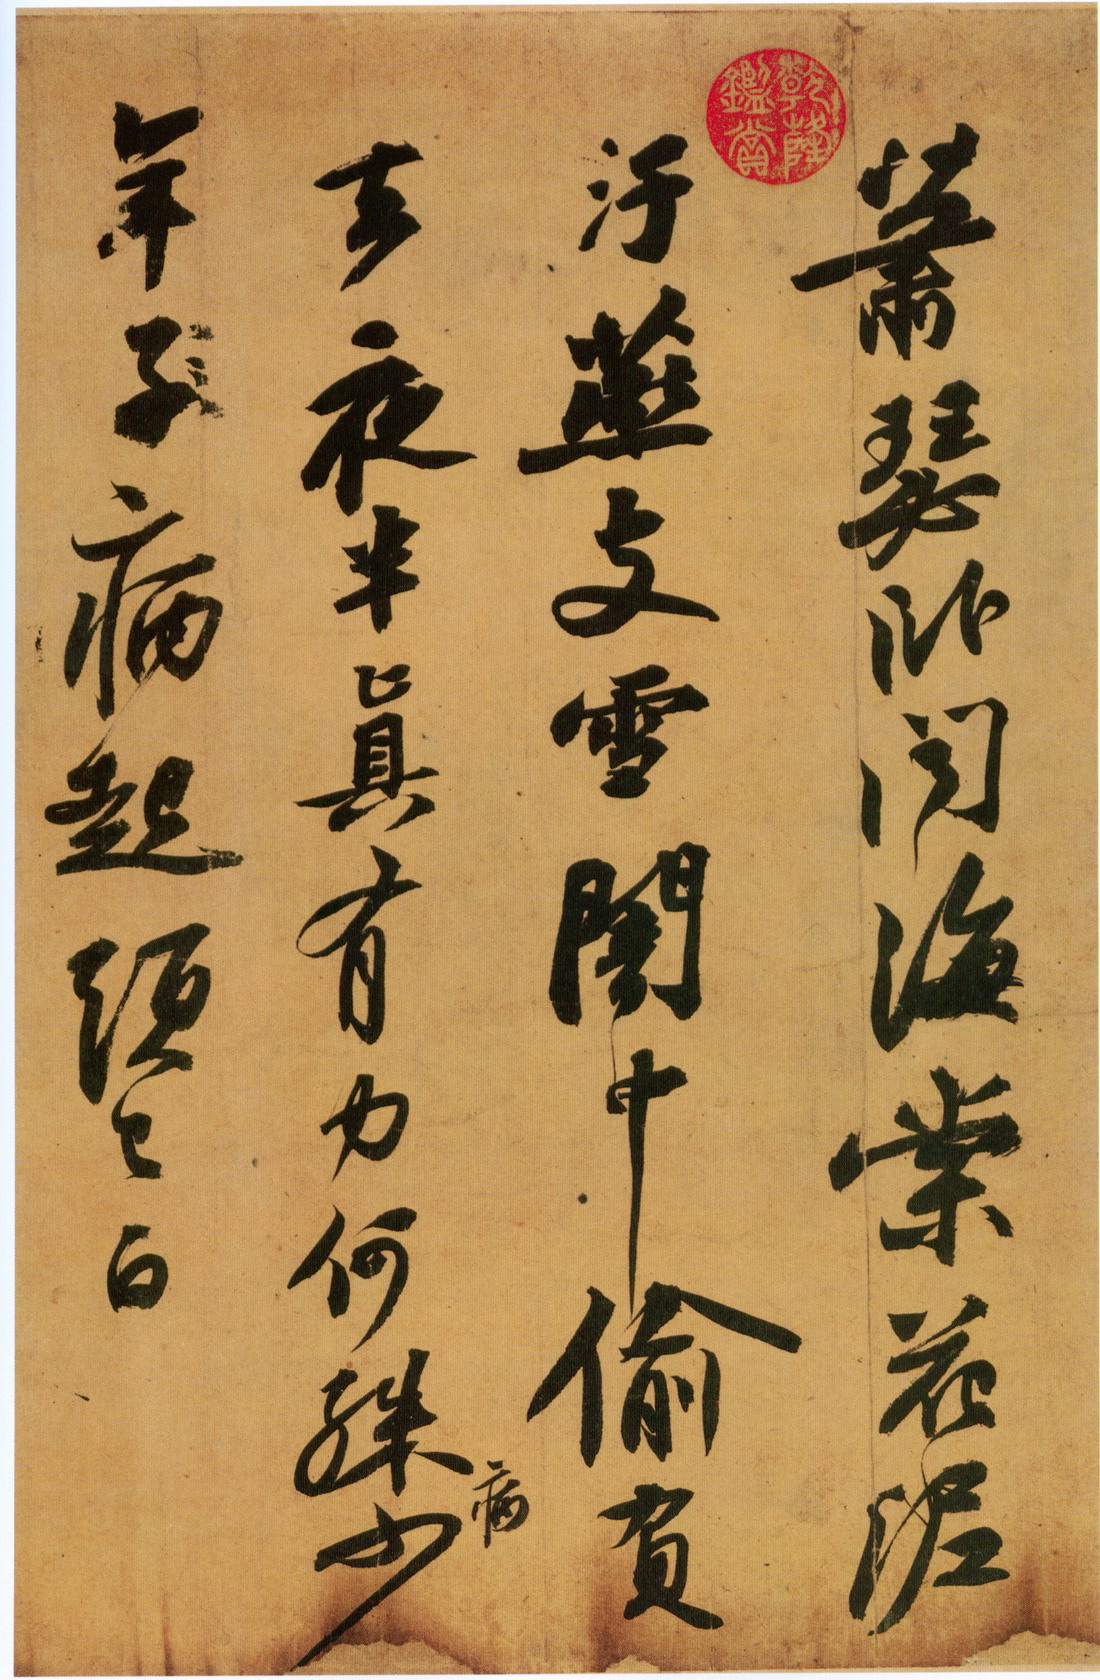 乾隆鑑賞
蕭瑟臥聞海棠花泥
汙燕支雪闇中偷負
去夜半眞有力何殊病少
年子病起頭已白